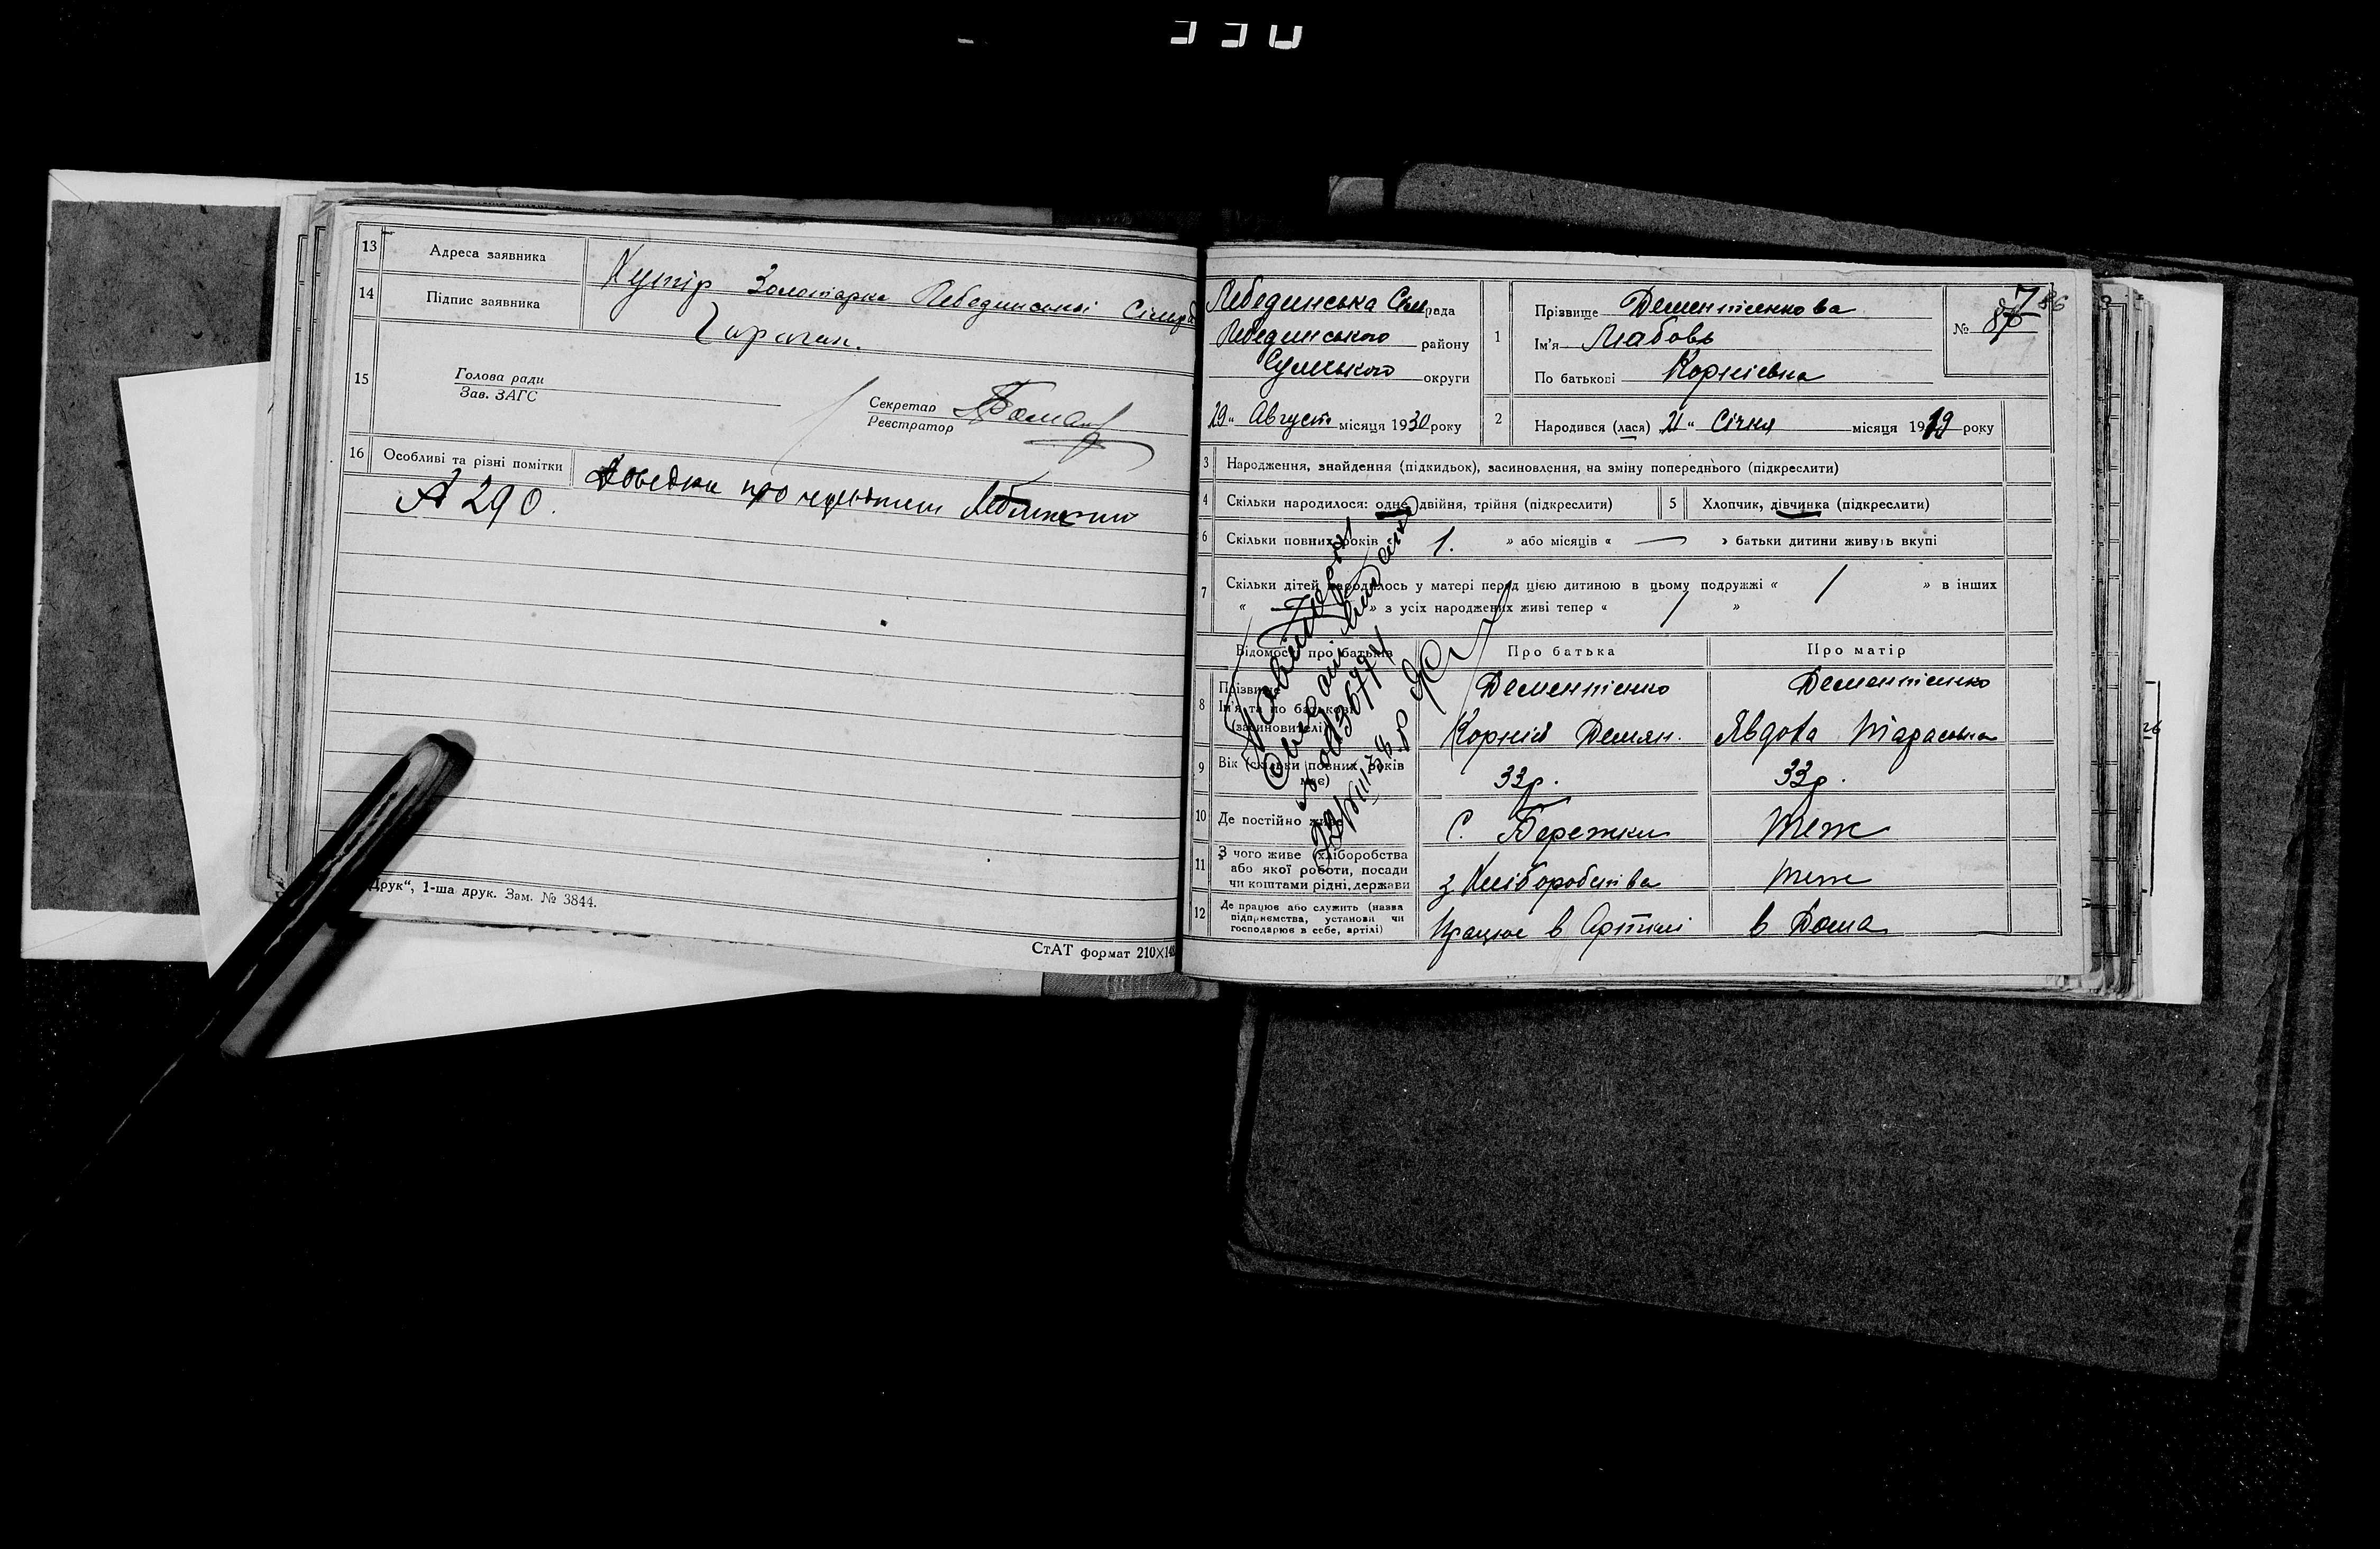 13 Адреса заявника Хутір Золотарка Лебединської Сільрад
14 Підпис заявника Гараган.
15 Голова ради
Зав. ЗАГС
Секретар
Реєстратор
16 Особливі та різні помітки Доведка про
А 290.
Друк“, 1-ша друк. Зам. № 3844.
СтАТ формат 210×148
Лебединська Сільрада
Лебединського району
Сумського округи
29 „ Августа місяця 1930 року
1 Прізвище Дементиенкова
Ім'я Любовь
По батькові Корніевна
№ 87
86
2 Народився (лася) „ 21 “ Січня місяця 1919 року
3 Народження, знайдення (підкидьок), засиновлення, на зміну попереднього (підкреслити)
4 Скільки народилося: одне, двійня, трійня (підкреслити)
5 Хлопчик, дівчинка (підкреслити)
6 Скільки повних років 1. » або місяців « — » батьки дитини живуть вкупі
7 Скільки дітей народилось у матері перед цією дитиною в цьому подружжі « / » в інших
« — » з усіх народжених живі тепер « / »
Відомості про батьків Про батька Про матір
8 Прізвище Дементиенко Дементиенко
Ім'я та по батькові Корній Демян. Явдоха Тарасовна
(засиновителі)
9 Вік (скільки повних років має) 33р. 33р.
10 Де постійно живе С. Бережки теж
11 З чого живе (хліборобства
або якої роботи, посади
чи коштами рідні, держави з Хліборобства теж
12 Де працює або служить (назва
підприємства, установи чи
господарює в себе, артілі) Працює в Артілі в Дома